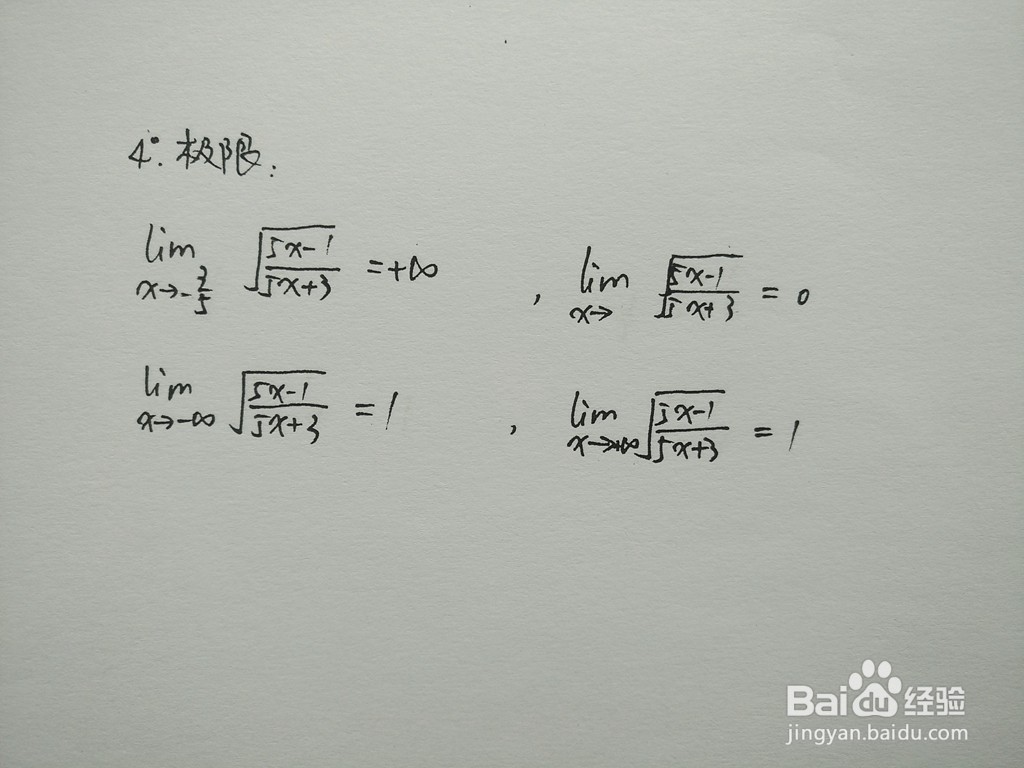 4°. 极限:
lim x→-3/5 √((5x-1)/(5x+3)) = +∞ , lim x→ √((5x-1)/(5x+3)) = 0
lim x→-∞ √((5x-1)/(5x+3)) = 1 , lim x→+∞ √((5x-1)/(5x+3)) = 1
Baidu经验
jingyan.baidu.com